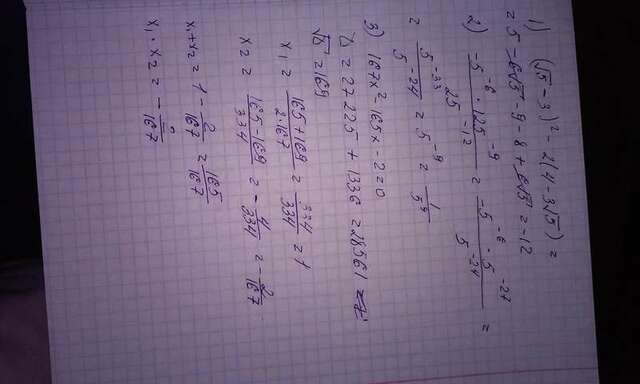 1) (√5 - 3)² - 2(4 - 3√5) =
= 5 - 6√5 - 9 - 8 + 6√5 = -12
2) -5⁻⁶ · 125⁻⁹ / 25⁻¹² = -5⁻⁶ · 5⁻²⁷ / 5⁻²⁴ =
= 5⁻³³ / 5⁻²⁴ = 5⁻⁹ = 1 / 5⁹
3) 167x² - 165x - 2 = 0
D = 27225 + 1336 = 28561
√D = 169
x₁ = 165 + 169 / 2·167 = 334 / 334 = 1
x₂ = 165 - 169 / 334 = - 4 / 334 = - 2 / 167
x₁ + x₂ = 1 - 2 / 167 = 165 / 167
x₁ · x₂ = - 2 / 167